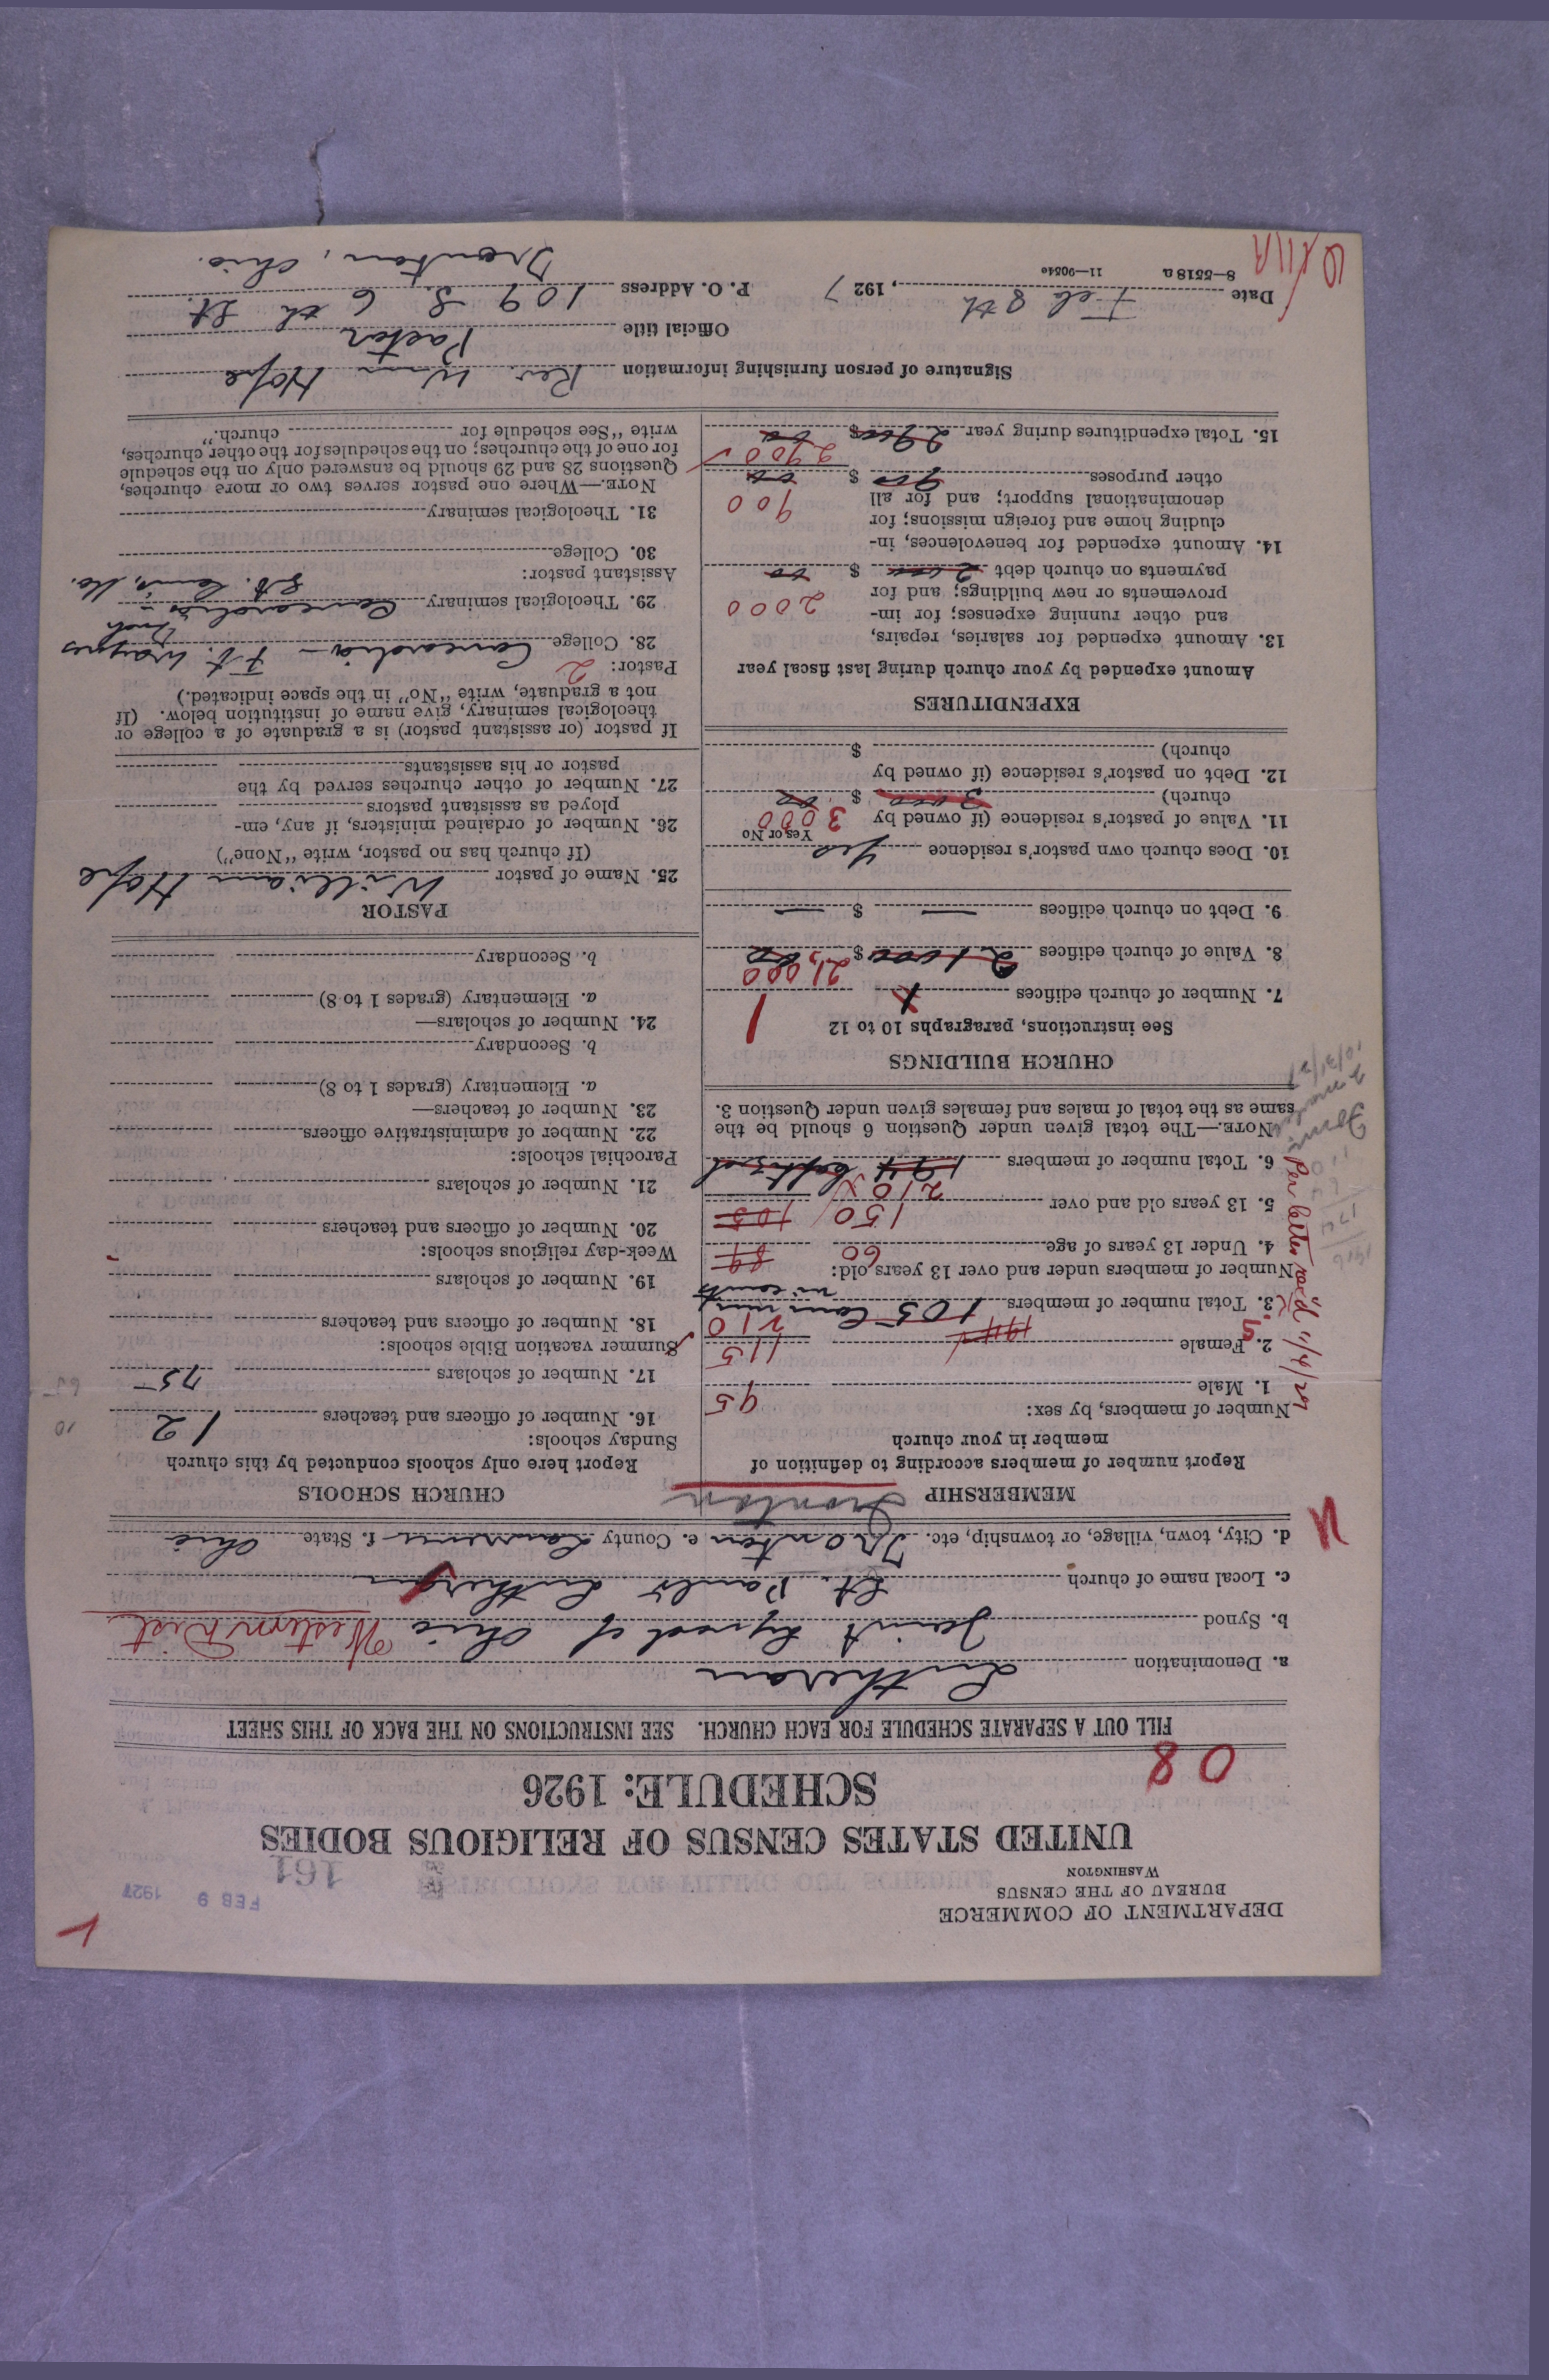 DEPARTMENT OF COMMERCE
BUREAU OF THE CENSUS
WASHINGTON
FEB 9 1927
161
UNITED STATES CENSUS OF RELIGIOUS BODIES
SCHEDULE: 1926
08
FILL OUT A SEPARATE SCHEDULE FOR EACH CHURCH. SEE INSTRUCTIONS ON THE BACK OF THIS SHEET
a. Denomination Lutheran
b. Synod Joint Synod of Ohio Western Dist
c. Local name of church St. Paul's Lutheran
d. City, town, village, or township, etc. Ironton e. County Lawrence f. State Ohio
Ironton
MEMBERSHIP
Report number of members according to definition of
member in your church
Number of members, by sex:
1. Male 95
2. Female 115
194
3. Total number of members 105 communicants 210
Number of members under and over 13 years old:
4. Under 13 years of age 60 89
5. 13 years old and over 150 105
210
6. Total number of members 194 baptized
NOTE.—The total given under Question 6 should be the
same as the total of males and females given under Question 3.
Per letter rec'd 11/4/27
CHURCH BUILDINGS
See instructions, paragraphs 10 to 12
7. Number of church edifices 1
8. Value of church edifices 21000 $ 00
21,000
9. Debt on church edifices — $ —
10. Does church own pastor's residence yes
Yes or No
11. Value of pastor's residence (if owned by
church) 3000 $ 00
3000
12. Debt on pastor's residence (if owned by
church) $
EXPENDITURES
Amount expended by your church during last fiscal year
13. Amount expended for salaries, repairs,
and other running expenses; for im-
provements or new buildings; and for
payments on church debt 2000 $ 00
2000
14. Amount expended for benevolences, in-
cluding home and foreign missions; for
denominational support; and for all
other purposes 900 $ 00
900
15. Total expenditures during year 2900 $ 00
2900
CHURCH SCHOOLS
Report here only schools conducted by this church
Sunday schools:
16. Number of officers and teachers 12
10
17. Number of scholars 75
65
Summer vacation Bible schools:
18. Number of officers and teachers
19. Number of scholars
Week-day religious schools:
20. Number of officers and teachers
21. Number of scholars
Parochial schools:
22. Number of administrative officers
23. Number of teachers—
a. Elementary (grades 1 to 8)
b. Secondary
24. Number of scholars—
a. Elementary (grades 1 to 8)
b. Secondary
PASTOR
25. Name of pastor William Hope
(If church has no pastor, write "None")
26. Number of ordained ministers, if any, em-
ployed as assistant pastors
27. Number of other churches served by the
pastor or his assistants
If pastor (or assistant pastor) is a graduate of a college or
theological seminary, give name of institution below. (If
not a graduate, write "No" in the space indicated.)
Pastor: 2
28. College Concordia – Ft. Wayne
Ind
29. Theological seminary Concordia –
St. Louis, Mo.
Assistant pastor:
30. College
31. Theological seminary
NOTE.—Where one pastor serves two or more churches,
Questions 28 and 29 should be answered only on the schedule
for one of the churches; on the schedules for the other churches,
write "See schedule for church."
Signature of person furnishing information Rev. Wm Hope
Official title Pastor
Date Feb 8th, 1927 P. O. Address 109 S. 6th St.
Ironton, Ohio.
8—5518a 11—9054c